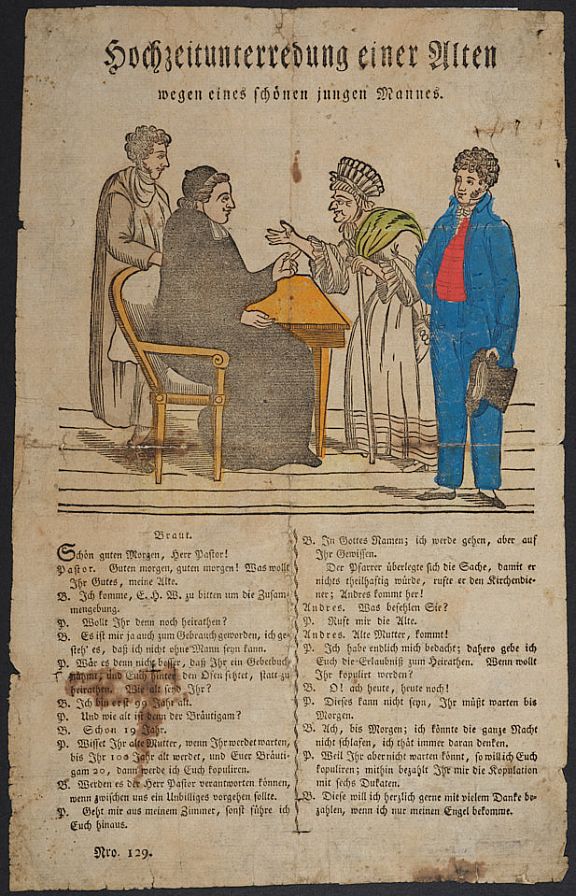 Hochzeitunterredung einer Alten
wegen eines schönen jungen Mannes.
Braut.
Schön guten Morgen, Herr Pastor!
Pastor. Guten morgen, guten morgen! Was wollt
Ihr Gutes, meine Alte.
B. Ich komme, E. H. W. zu bitten um die Zusam-
mengebung.
P. Wollt Ihr denn noch heirathen?
B. Es ist mir ja auch zum Gebrauch geworden, ich ge-
steh' es, daß ich nicht ohne Mann seyn kann.
P. Wär es denn nicht besser, daß Ihr ein Gebetbuch
nähmt, und Euch hinter den Ofen setztet, statt zu
heirathen. Wie alt seyd Ihr?
B. Ich bin erst 99 Jahr alt.
P. Und wie alt ist denn der Bräutigam?
B. Schon 19 Jahr.
P. Wisset Ihr alte Mutter, wenn Ihr werdet warten,
bis Ihr 100 Jahr alt werdet, und Euer Bräuti-
gam 20, dann werde ich Euch kopuliren.
B. Werden es der Herr Pastor verantworten können,
wenn zwischen uns ein Unbilliges vorgehen sollte.
P. Geht mir aus meinem Zimmer, sonst führe ich
Euch hinaus.
B. In Gottes Namen; ich werde gehen, aber auf
Ihr Gewissen.
Der Pfarrer überlegte sich die Sache, damit er
nichts theilhaftig würde, rufte er den Kirchendie-
ner; Andres kommt her!
Andres. Was befehlen Sie?
P. Ruft mir die Alte.
Andres. Alte Mutter, kommt!
P. Ich habe endlich mich bedacht; dahero gebe ich
Euch die Erlaubniß zum Heirathen. Wenn wollt
Ihr kopulirt werden?
B. O! ach heute, heute noch!
P. Dieses kann nicht seyn, Ihr müßt warten bis
Morgen.
B. Ach, bis Morgen; ich könnte die ganze Nacht
nicht schlafen, ich thät immer daran denken.
P. Weil Ihr aber nicht warten könnt, so will ich Euch
kopuliren; mithin bezahlt Ihr mir die Kopulation
mit sechs Dukaten.
B. Diese will ich herzlich gerne mit vielem Danke be-
zahlen, wenn ich nur meinen Engel bekomme.
Nro. 129.